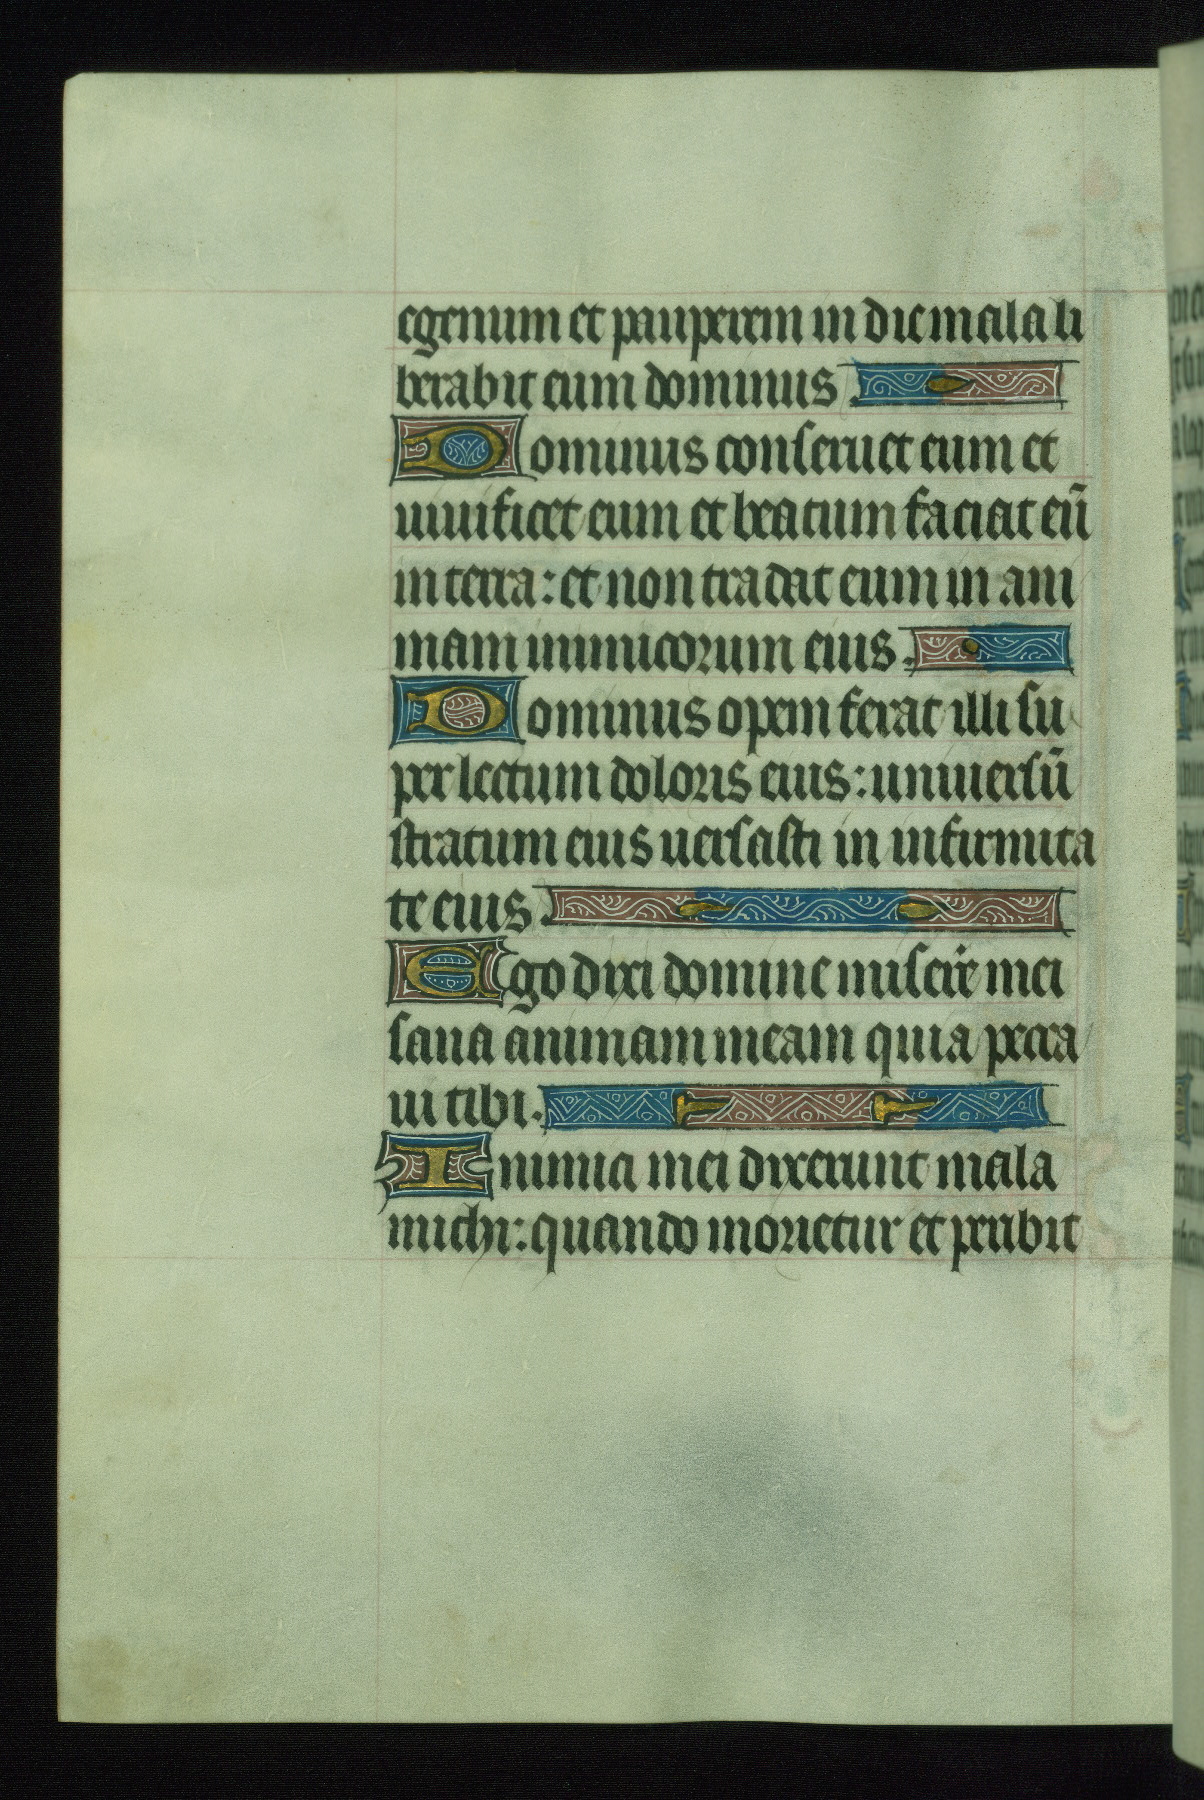 egenum et pauperem in die mala li
berabit eum dominus.
Dominus conseruet eum et
uiuificet eum et beatum faciat eū
in terra: et non tradat eum in ani
mam inimicorum eius.
Dominus opem ferat illi su
per lectum doloris eius: uniuersū
stratum eius uersasti in infirmita
te eius.
Ego dixi domine misere mei
sana animam meam quia pecca
ui tibi.
Inimici mei dixerunt mala
michi: quando morietur et peribit